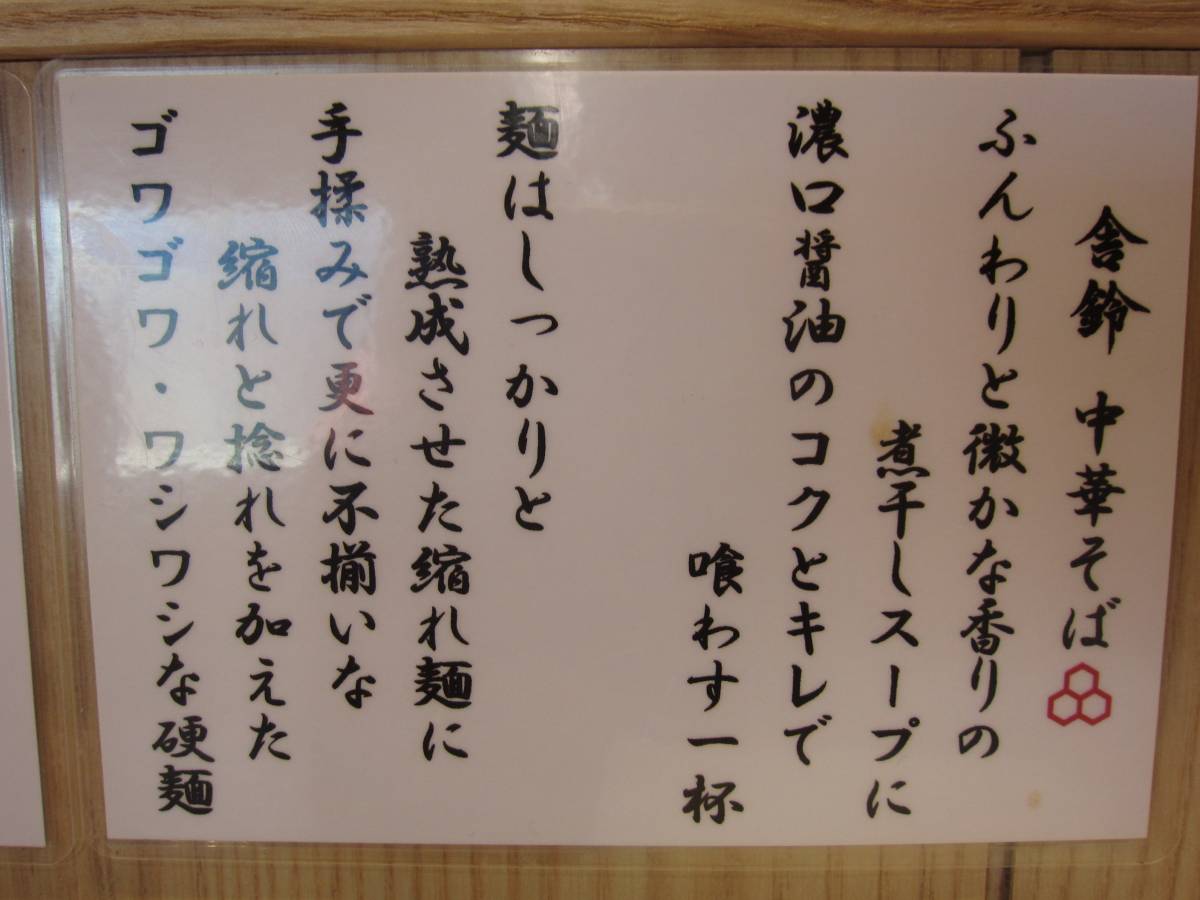 舎鈴 中華そば
ふんわりと微かな香りの
煮干しスープに
濃口醤油のコクとキレで
喰わす一杯
麺はしっかりと
熟成させた縮れ麺に
手揉みで更に不揃いな
縮れと捻れを加えた
ゴワゴワ・ワシワシな硬麺